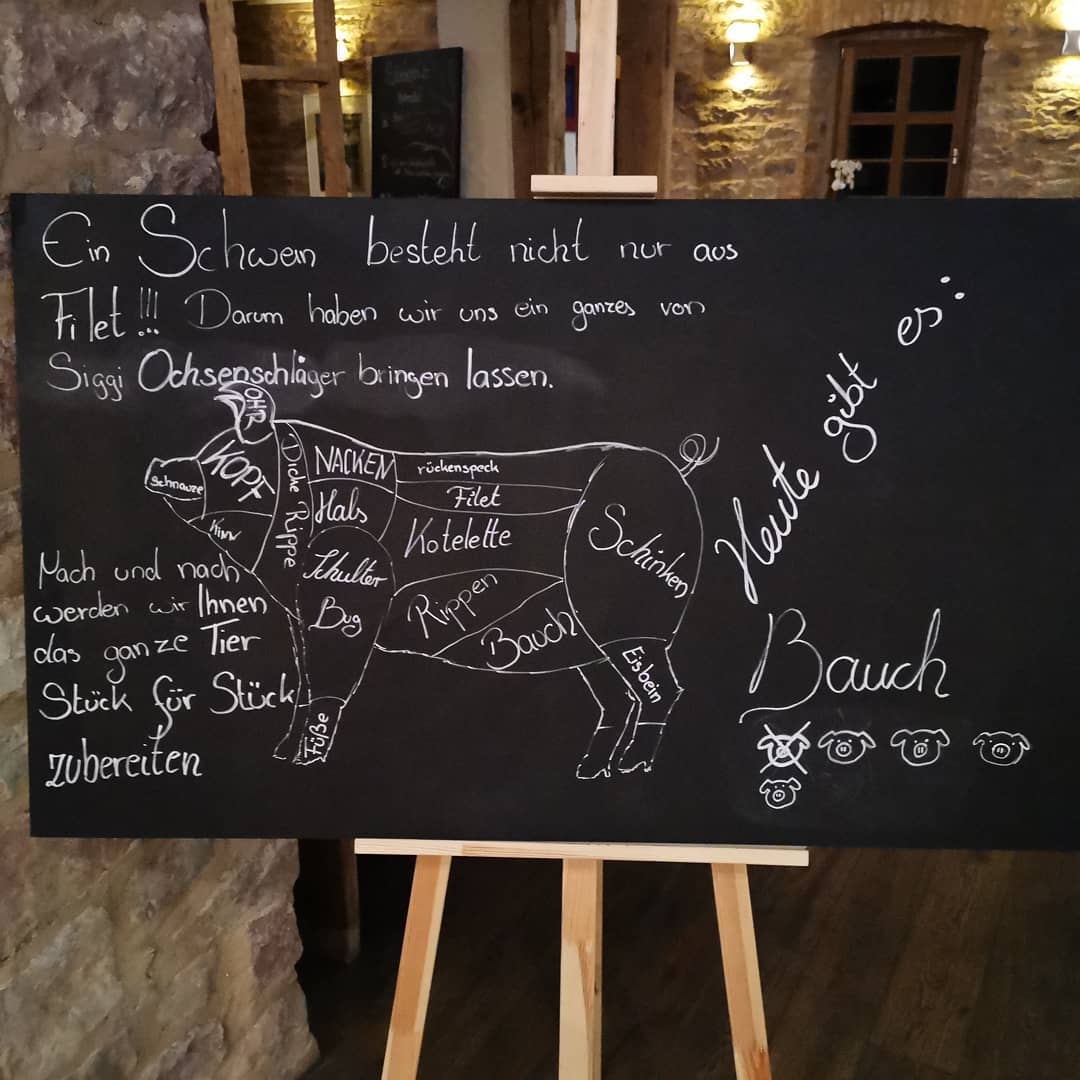 Ein Schwein besteht nicht nur aus
Filet!!! Darum haben wir uns ein ganzes von
Siggi Ochsenschläger bringen lassen.
OHR
KOPF
Schnauze
Kinn
Dicke Rippe
NACKEN
Hals
Schulter
Bug
Füße
rückenspeck
Filet
Kotelette
Rippen
Bauch
Schinken
Eisbein
Nach und nach
werden wir Ihnen
das ganze Tier
Stück für Stück
zubereiten
Heute gibt es:
Bauch